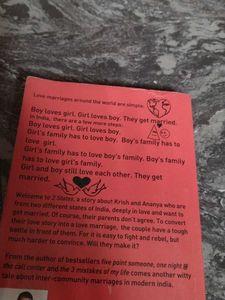 Love marriages around the world are simple:
Boy loves girl. Girl loves boy. They get married.
In India, there are a few more steps:
Boy loves Girl. Girl loves Boy.
Girl's family has to love boy. Boy's family has to
love girl.
Girl's family has to love boy's family. Boy's family
has to love girl's family.
Girl and boy still love each other. They get
married.
Welcome to 2 States, a story about Krish and Ananya who are
from two different states of India, deeply in love and want to
get married. Of course, their parents don't agree. To convert
their love story into a love marriage, the couple have a tough
battle in front of them. For it is easy to fight and rebel, but
much harder to convince. Will they make it?
From the author of bestsellers five point someone, one night @
the call center and the 3 mistakes of my life comes another witty
tale about inter-community marriages in modern india.